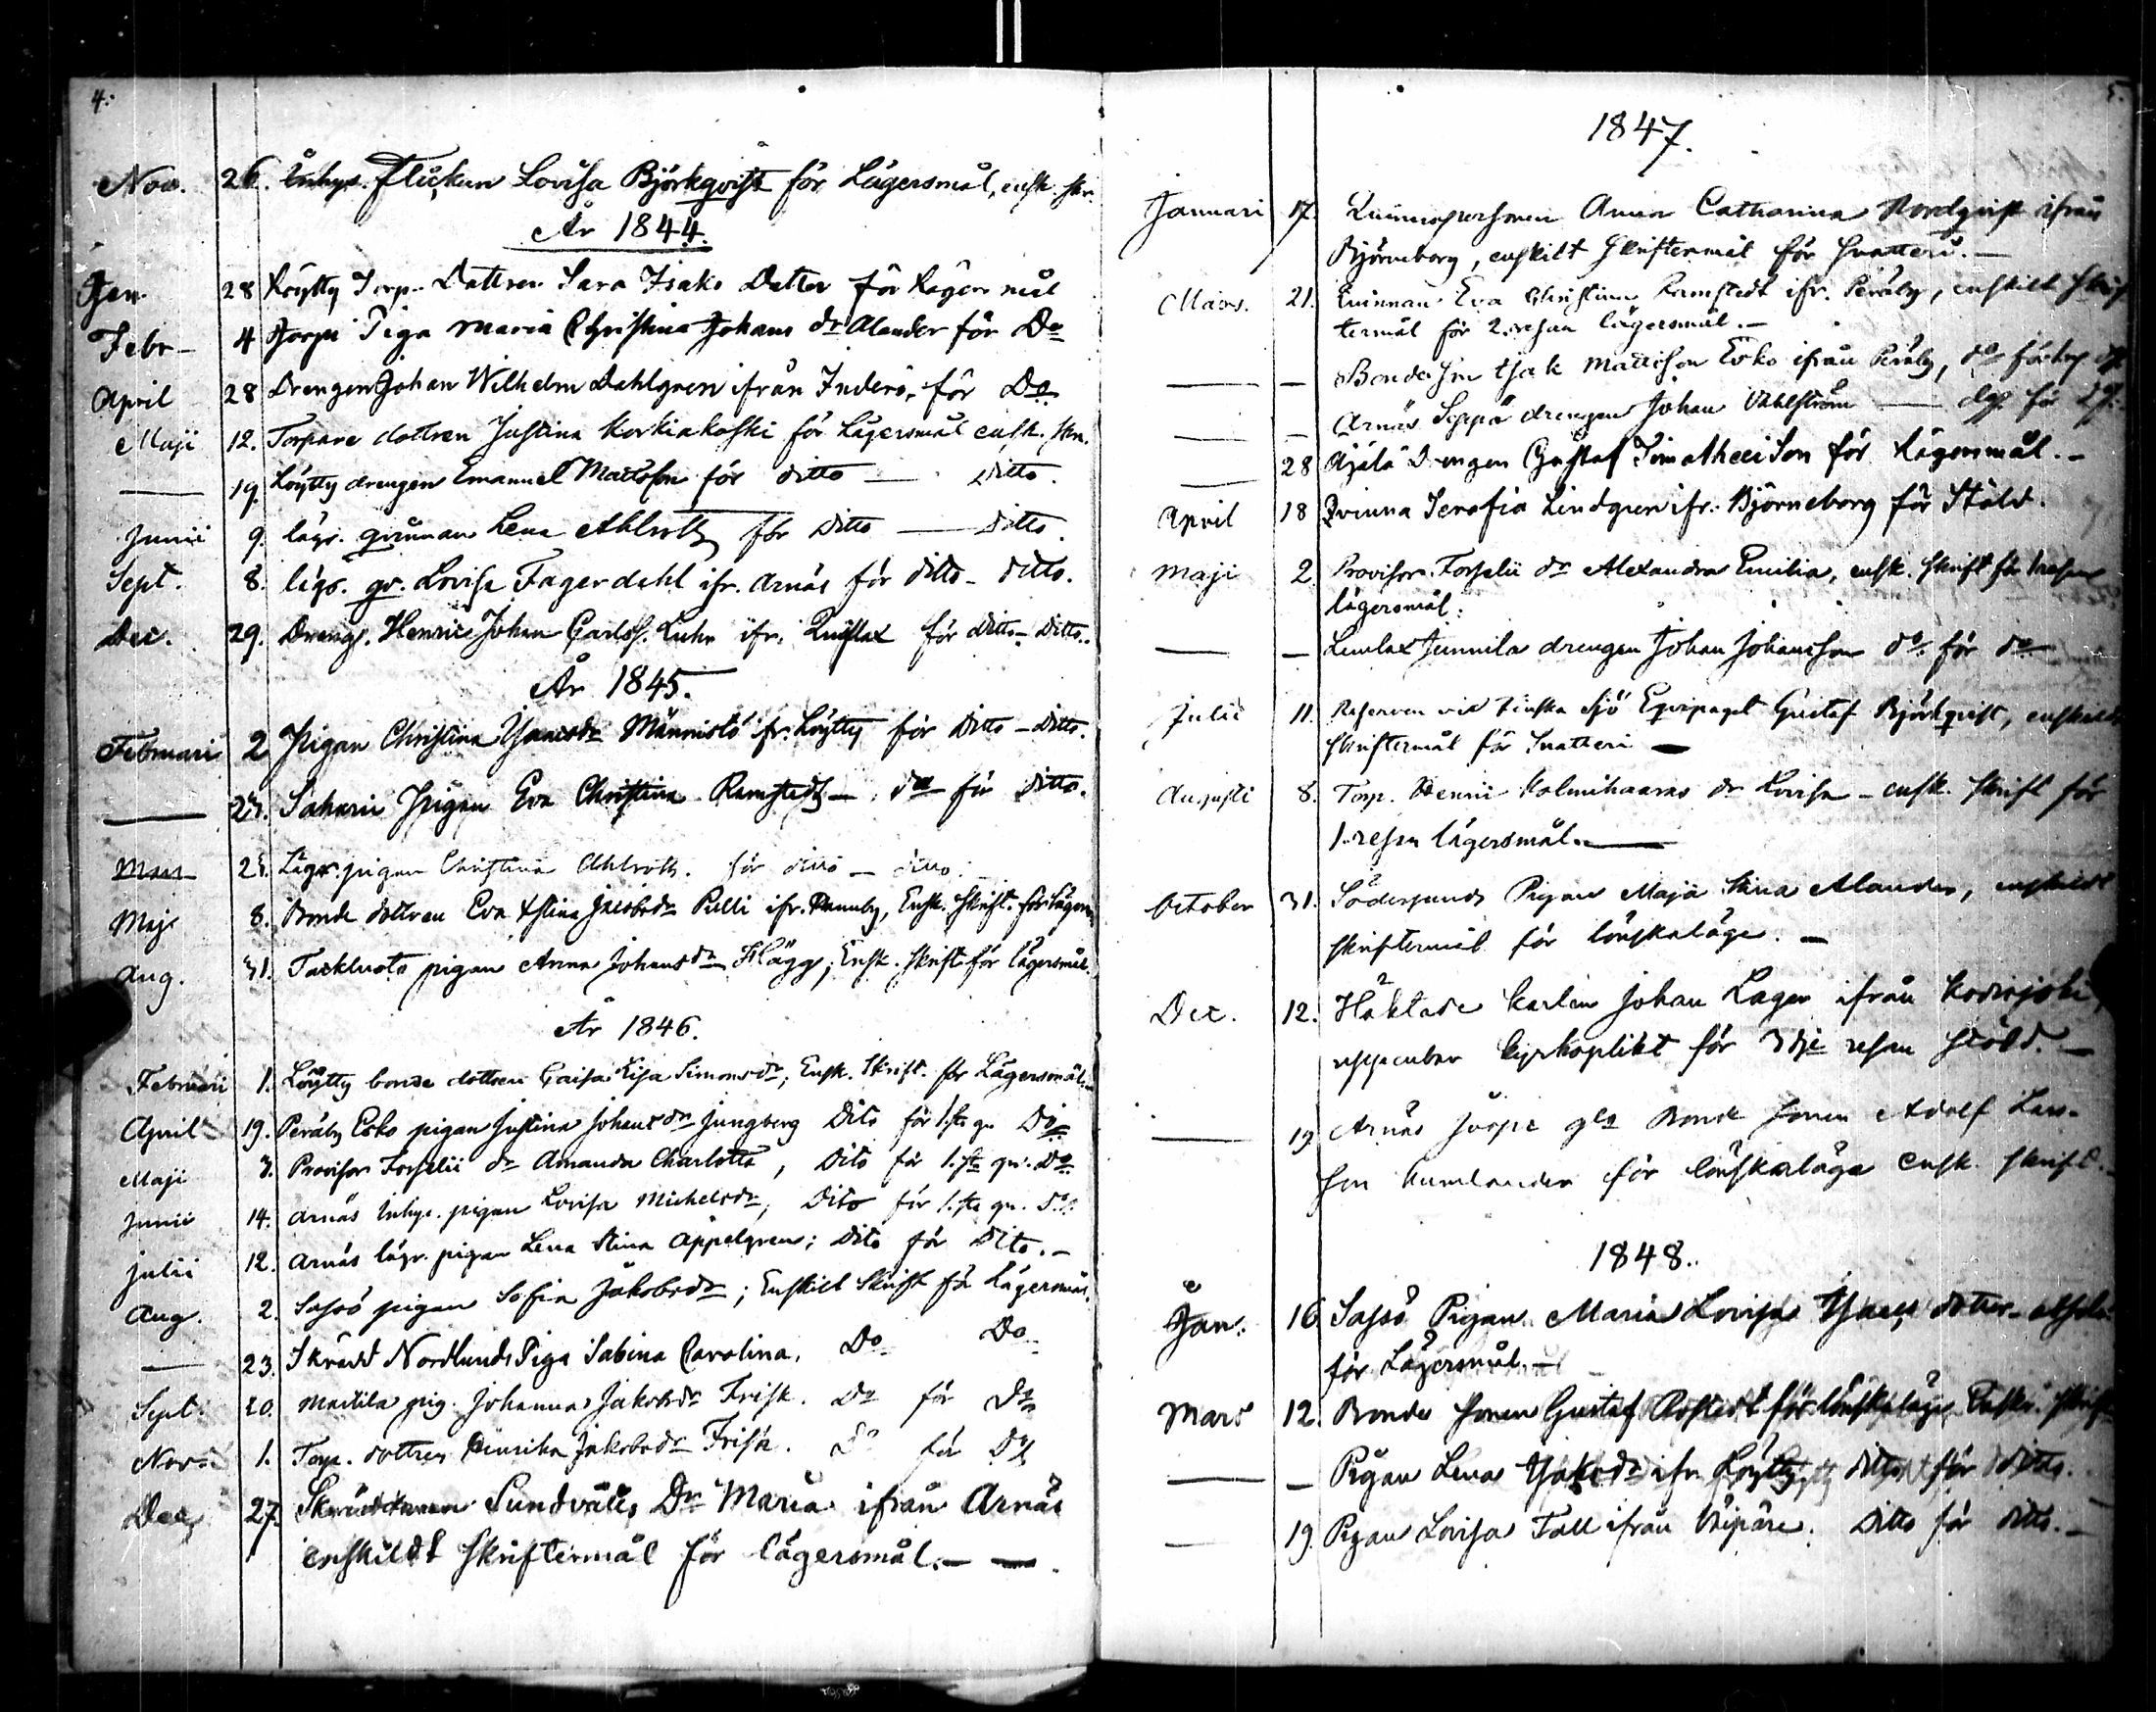 4.
Nov. 26. Inhys. Flickan Lovisa Björkqvist för Lägersmål, ensk. skr.
År 1844.
Jan. 28 Köytty Torp. Dottren Sara Isaks Dotter för Lägersmål
Febr. 4 Piga Maria Christina Johans dr Alander för Do
April 28 Drengen Johan Wilhelm Dahlgren ifrån Inderö, för Do
Maji 12. Torpare dottren Justina Korkiakoski för Lägersmål ensk. skr.
— 19. Köytty drengen Emanuel Mattsson för ditto — Ditto.
Junii 9. lägr. qvinnan Lena Ahlroth för Ditto — Ditto.
Sept. 8. lägr. qv. Lovisa Fagerdahl ifr. Arnäs för ditto - ditto.
Dec. 29. Dreng. Henric Johan Carlss. ifr. för ditto - ditto.
År 1845.
Februari 2 Pigan Christina Männistö ifr. Köytty för Ditto - Ditto.
— Pigan Eva Christina Ramstedt — do för Ditto.
Mars Lägr. pigan Christina Ahlroth. för ditto — ditto.
Maj 8. Bonde dottren Eva Stina Jacobsdr Pelli ifr. Ensk. Skrift. för Lägersm.
Aug. 31. Tackluoto pigan Anna Johansdr Hägg; Ensk. skrift. för lägersmål.
År 1846.
Februari 1. Köytty bonde dottren Caisa Lisa Simonsdr; Ensk. Skrift. för Lägersmål.
April 19. Peräby Esko pigan Justina Johansdr Jungberg Dito för 1.sta g. Do
Maji 3. Provisor Forselii dr Amanda Charlotta, Dito för 1.sta g. Do
Junii 14. Arnäs Inhys. pigan Lovisa Michelsdr, Dito för 1.sta g. Do
Julii 12. Arnäs lägr. pigan Lena Stina Appelgren; Dito för Dito. -
Aug. 2. Sassö pigan Sofia Jakobsdr; Enskilt Skrift för Lägersmål.
— 23. Skrädd Nordlunds Piga Sabina Carolina. Do Do
Sept. 20. Mattila pig. Johanna Jakobsdr Frisk. Do för Do
Nov. 1. Torp. dottren Henrika Jakobsdr Frisk. Do för Do
Dec. 27. Skräddaren Sundvalls Dr Maria ifrån Arnäs
enskildt Skriftermål för lägersmål. — —
5.
1847.
Januari 17. Qvinnspersonen Anna Catharina Nordqvist ifrån
Björneborg, enskilt Skriftermål för Snatteri. —
Mars. 21. Qvinnan Eva Christina Ramstedt ifr. Peräby, enskilt Skrif
termål för 2. resan lägersmål. —
— — Bonde Son Isak Mattsson Esko ifrån Peräby, do för
— — Arnäs Seppä drengen Johan Vahlström — do för
— 28 Ajälä Drengen Gustaf Timotheei Son för Lägersmål. -
April 18 Qvinna Serafia Lindgren ifr. Björneborg för Stöld.
Maji 2 Provisor Forselii dr Alexandra Emilia, ensk. skrift för 1 resan
lägersmål.
— — Lemlax Junnila drengen Johan Johansson do för do
Julii 11. Reserven vid Finska Sjö Eqvipaget Gustaf Björkqvist, enskildt
skriftermål för Snatteri —
Augusti 8. Torp. Henric Kolmihaaras dr Lovisa - ensk. skrift för
1. resan lägersmål. —
October 31. Södersunds Pigan Maja Stina Alander, enskildt
skriftermål för lönskaläge. —
Dec. 12. Häktade karlen Johan Lager ifrån Kodisjoki
uppenbar kyrkoplikt för 3dje resan stöld. —
— 19 Arnäs Juopi Bonde Sonen Adolf Lars-
son för lönskaläge ensk. skrift.
1848.
Jan. 16 Sassö Pigan Maria Lovisa Isacs dotter -
för Lägersmål. —
Mars 12. Bonde Sonen Gustaf Rostedt för lönskaläge, Ensk. skrift
— — Pigan Lena Isaksdr ifr. Köytty ditto för ditto.
— 19. Pigan Lovisa Fall ifrån Ditto för ditto. —